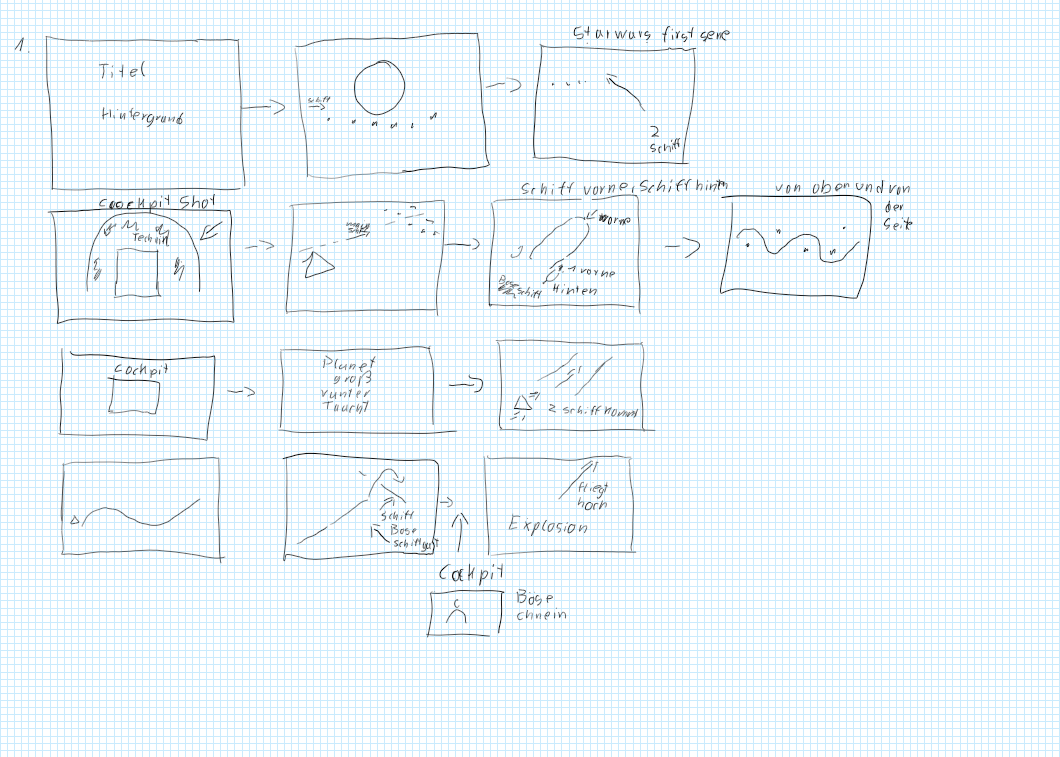 1.
Titel
Hintergrund
schiff
Starwars first scne
2
schiff
Coockpit Shot
Technik
Schiff vorne, Schiff hintn
vorne
1 vorne
Hinten
Böse
schiff
von oben und von
der
Seite
Cockpit
Planet
groß
runter
Taucht
2 schiff kommt
schiff
Böse
schiff gut
fliegt
hoch
Explosion
Cockpit
Böse